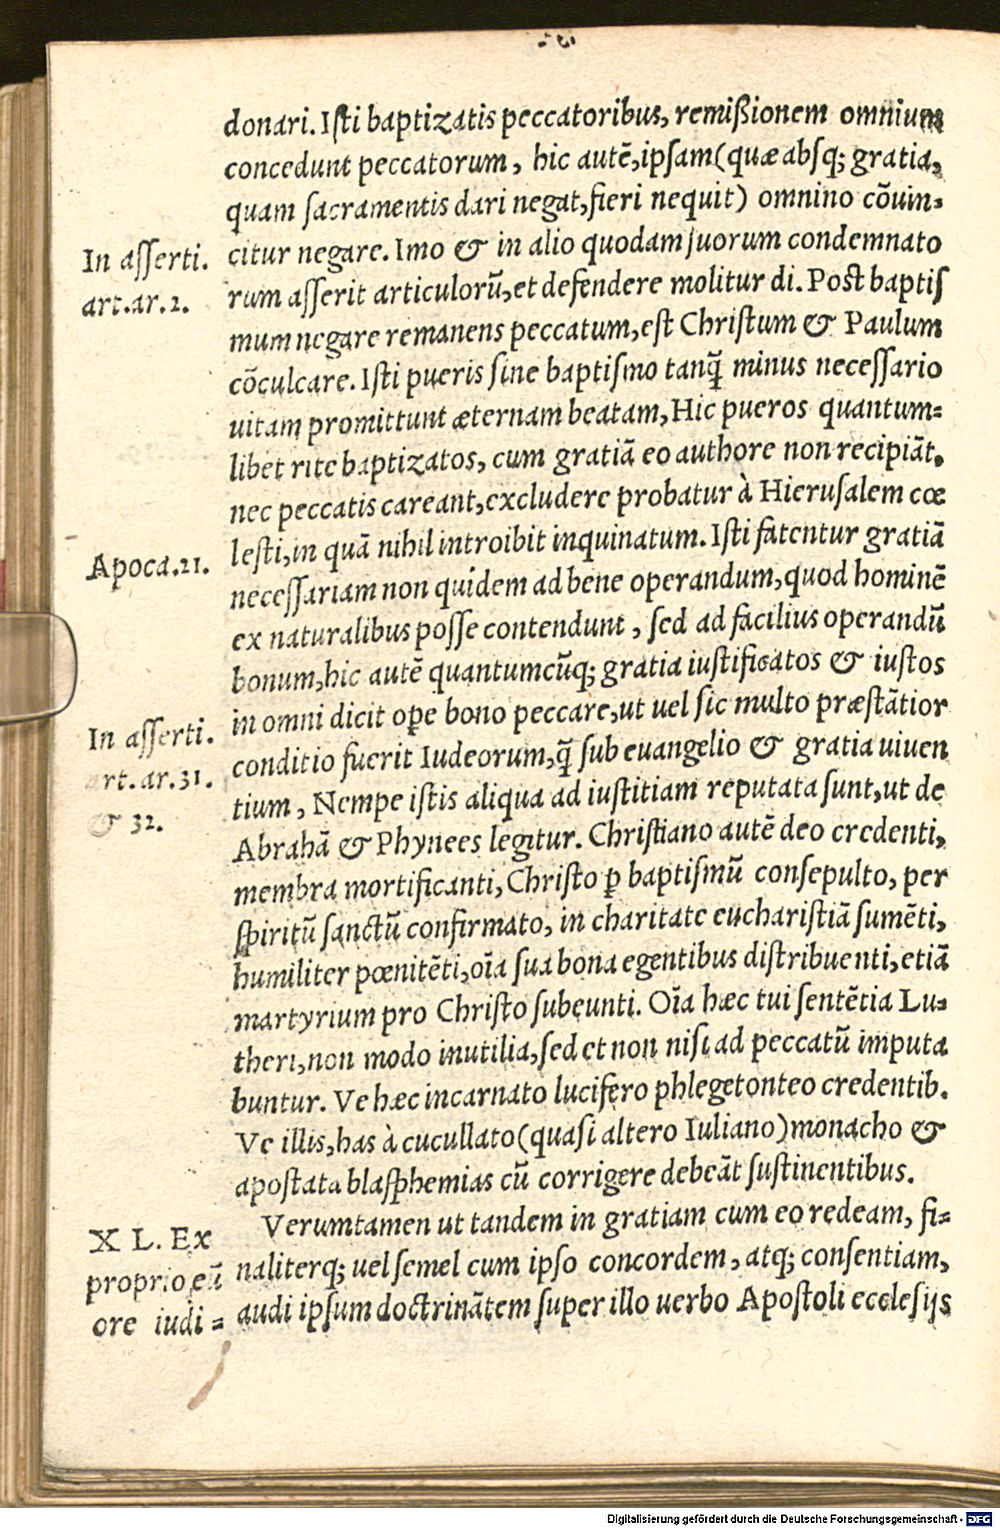 donari. Iſti baptizatis peccatoribus, remißionem omnium
concedunt peccatorum, hic autē, ipſam (quæ abſq; gratia,
quam ſacramentis dari negat, fieri nequit) omnino cōuin=
citur negare. Imo & in alio quodam ſuorum condemnato
In aſſerti.
art. ar. 2.
rum aſſerit articulorū, et defendere molitur di. Poſt baptiſ
mum negare remanens peccatum, eſt Chriſtum & Paulum
cōculcare. Iſti pueris ſine baptiſmo tanq̄ minus neceſſario
uitam promittunt æternam beatam, Hic pueros quantum=
libet rite baptizatos, cum gratiā eo authore non recipiāt,
nec peccatis careant, excludere probatur à Hieruſalem cœ
leſti, in quā nihil introibit inquinatum. Iſti fatentur gratiā
Apoca. 21.
neceſſariam non quidem ad bene operandum, quod hominē
ex naturalibus poſſe contendunt, ſed ad facilius operandū
bonum, hic autē quantumcūq; gratia iuſtificatos & iuſtos
in omni dicit oꝑe bono peccare, ut uel ſic multo præſtātior
In aſſerti.
art. ar. 31.
& 32.
conditio fuerit Iudeorum, q̄ ſub euangelio & gratia uiuen
tium, Nempe iſtis aliqua ad iuſtitiam reputata ſunt, ut de
Abrahā & Phynees legitur. Chriſtiano autē deo credenti,
membra mortificanti, Chriſto ꝑ baptiſmū conſepulto, per
ſpiritū ſanctū confirmato, in charitate euchariſtiā ſumēti,
humiliter pœnitēti, oīa ſua bona egentibus diſtribuenti, etiā
martyrium pro Chriſto ſubeunti. Oīa hæc tui ſentētia Lu=
theri, non modo inutilia, ſed et non niſi ad peccatū imputa
buntur. Ve hæc incarnato lucifero phlegetonteo credentib.
Ve illis, has à cucullato (quaſi altero Iuliano) monacho &
apoſtata blaſphemias cū corrigere debeāt ſuſtinentibus.
Verumtamen ut tandem in gratiam cum eo redeam, fi=
X L. Ex
proprio eū
ore iudi=
naliterq; uel ſemel cum ipſo concordem, atq; conſentiam,
audi ipſum doctrinātem ſuper illo uerbo Apoſtoli eccleſijs
Digitalisierung gefördert durch die Deutsche Forschungsgemeinschaft - DFG